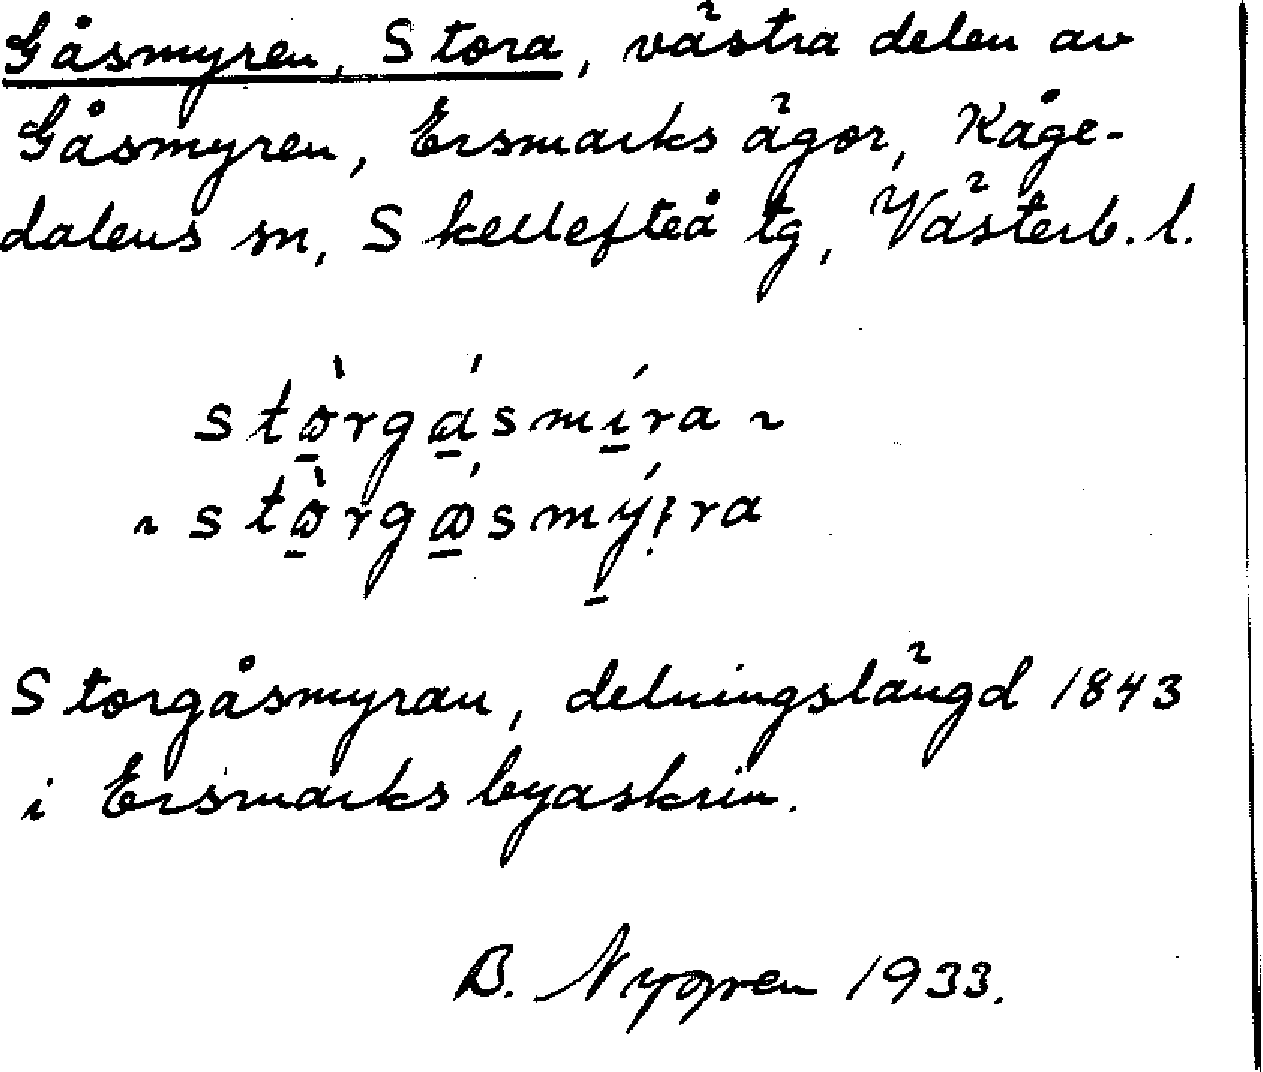 Gåsmyren, Stora, västra delen av
Gåsmyren, Ersmarks ägor, Kåge-
dalens sn, Skellefteå tg, Västerb. l.
Storgåsmyran, delningslängd 1843
i Ersmarks byaskrin.
B. Nygren 1933.